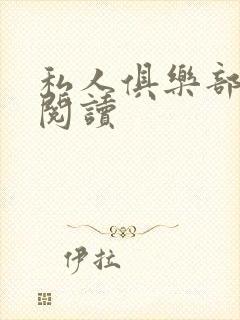 私人俱樂部
閱讀
伊拉